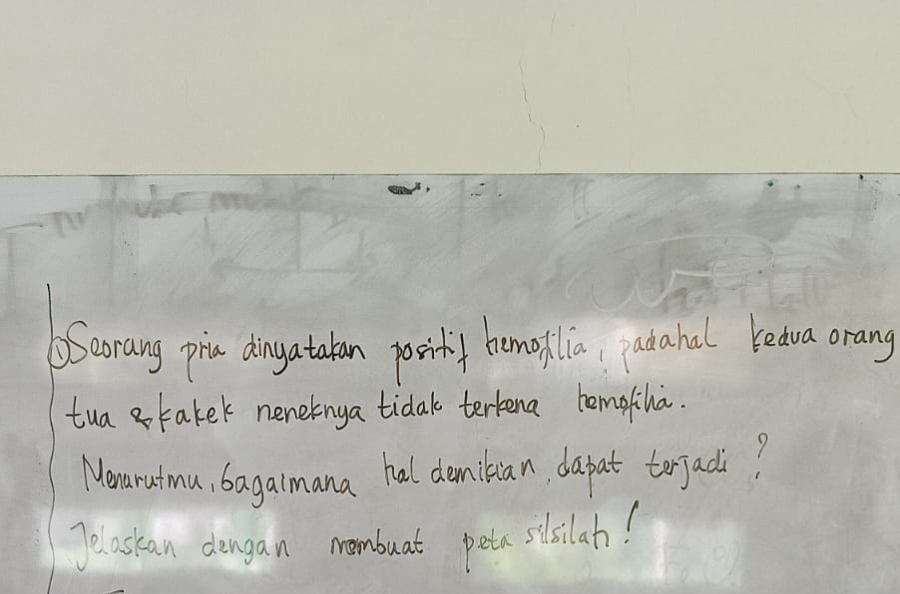 ① Seorang pria dinyatakan positif hemofilia, padahal kedua orang
tua & kakek neneknya tidak terkena hemofilia.
Menurutmu, bagaimana hal demikian dapat terjadi?
Jelaskan dengan membuat peta silsilah!